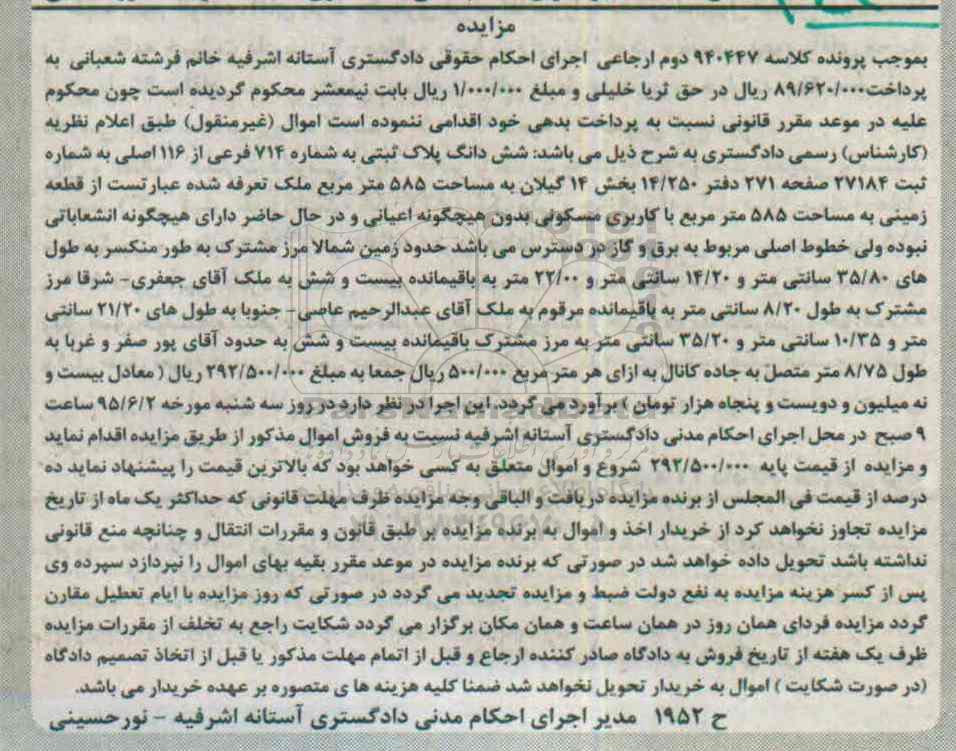 مزایده
بموجب پرونده کلاسه ۹۴۰۴۴۷ دوم ارجاعی اجرای احکام حقوقی دادگستری آستانه اشرفیه خانم فرشته شعبانی به
پرداخت۸۹/۶۲۰/۰۰۰ ریال در حق ثریا خلیلی و مبلغ ۱/۰۰۰/۰۰۰ ریال بابت نیمعشر محکوم گردیده است چون محکوم
علیه در موعد مقرر قانونی نسبت به پرداخت بدهی خود اقدامی ننموده است اموال (غیرمنقول) طبق اعلام نظریه
(کارشناس) رسمی دادگستری به شرح ذیل می باشد: شش دانگ پلاک ثبتی به شماره ۷۱۴ فرعی از ۱۱۶ اصلی به شماره
ثبت ۲۷۱۸۴ صفحه ۲۷۱ دفتر ۱۴/۲۵۰ بخش ۱۴ گیلان به مساحت ۵۸۵ متر مربع ملک تعرفه شده عبارتست از قطعه
زمینی به مساحت ۵۸۵ متر مربع با کاربری مسکونی بدون هیچگونه اعیانی و در حال حاضر دارای هیچگونه انشعاباتی
نبوده ولی خطوط اصلی مربوط به برق و گاز در دسترس می باشد حدود زمین شمالا مرز مشترک به طور منکسر به طول
های ۳۵/۸۰ سانتی متر و ۱۴/۲۰ سانتی متر و ۲۲/۰۰ متر به باقیمانده بیست و شش به ملک آقای جعفری- شرقا مرز
مشترک به طول ۸/۲۰ سانتی متر به باقیمانده مرقوم به ملک آقای عبدالرحیم عاصی- جنوبا به طول های ۲۱/۲۰ سانتی
متر و ۱۰/۳۵ سانتی متر و ۳۵/۲۰ سانتی متر به مرز مشترک باقیمانده بیست و شش به حدود آقای پور صفر و غربا به
طول ۸/۷۵ متر متصل به جاده کانال به ازای هر متر مربع ۵۰۰/۰۰۰ ریال جمعا به مبلغ ۲۹۲/۵۰۰/۰۰۰ ریال ( معادل بیست و
نه میلیون و دویست و پنجاه هزار تومان ) برآورد می گردد. این اجرا در نظر دارد در روز سه شنبه مورخه ۹۵/۶/۲ ساعت
۹ صبح در محل اجرای احکام مدنی دادگستری آستانه اشرفیه نسبت به فروش اموال مذکور از طریق مزایده اقدام نماید
و مزایده از قیمت پایه ۲۹۲/۵۰۰/۰۰۰ شروع و اموال متعلق به کسی خواهد بود که بالاترین قیمت را پیشنهاد نماید ده
درصد از قیمت فی المجلس از برنده مزایده دریافت و الباقی وجه مزایده ظرف مهلت قانونی که حداکثر یک ماه از تاریخ
مزایده تجاوز نخواهد کرد از خریدار اخذ و اموال به برنده مزایده بر طبق قانون و مقررات انتقال و چنانچه منع قانونی
نداشته باشد تحویل داده خواهد شد در صورتی که برنده مزایده در موعد مقرر بقیه بهای اموال را نپردازد سپرده وی
پس از کسر هزینه مزایده به نفع دولت ضبط و مزایده تجدید می گردد در صورتی که روز مزایده با ایام تعطیل مقارن
گردد مزایده فردای همان روز در همان ساعت و همان مکان برگزار می گردد شکایت راجع به تخلف از مقررات مزایده
ظرف یک هفته از تاریخ فروش به دادگاه صادر کننده ارجاع و قبل از اتمام مهلت مذکور یا قبل از اتخاذ تصمیم دادگاه
(در صورت شکایت ) اموال به خریدار تحویل نخواهد شد ضمنا کلیه هزینه ها ی متصوره بر عهده خریدار می باشد.
ح ۱۹۵۲ مدیر اجرای احکام مدنی دادگستری آستانه اشرفیه - نورحسینی